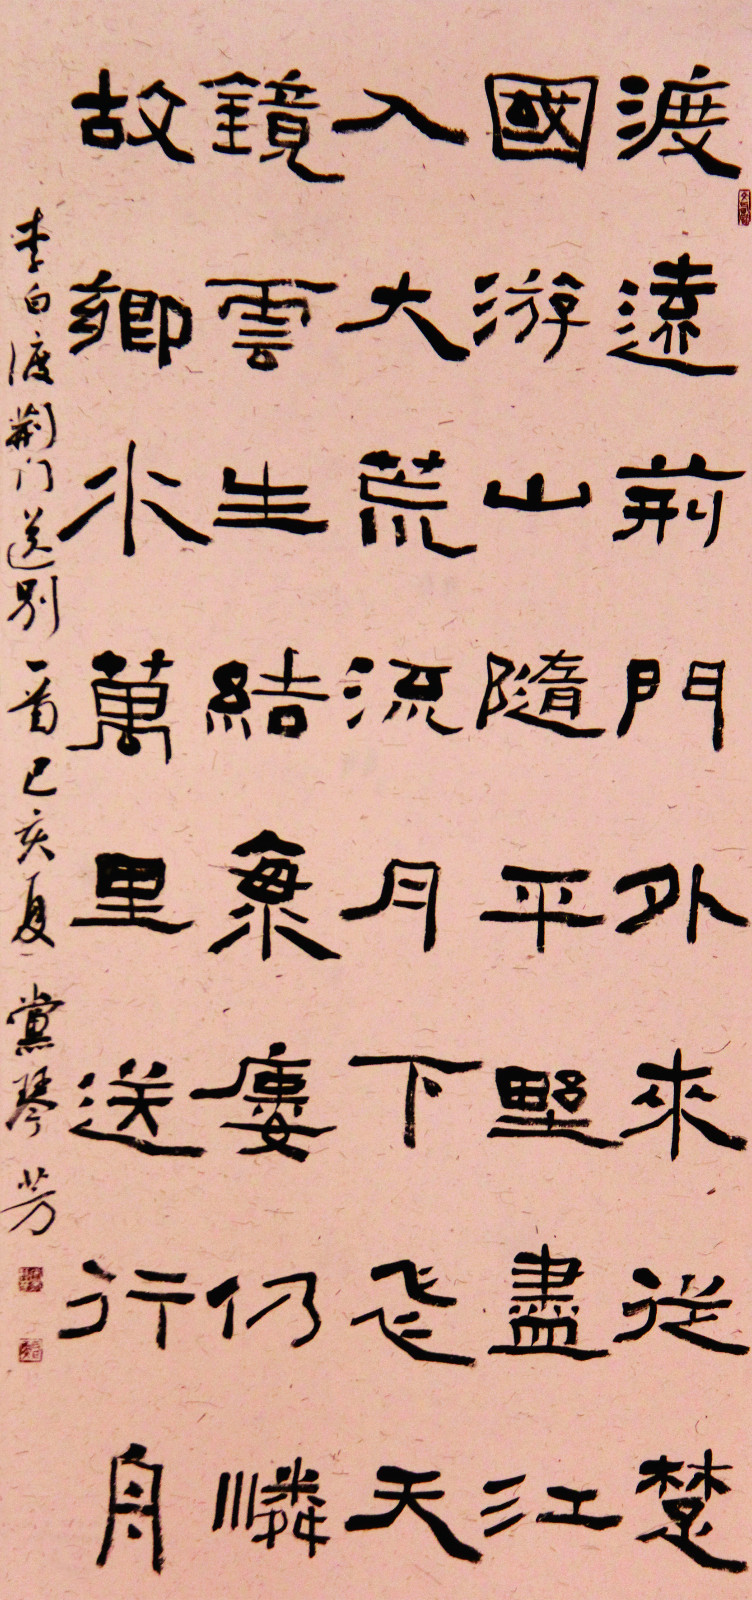 渡遠荆門外來從楚
國游山隨平野盡江
入大荒流月下飛天
鏡雲生結海廔仍憐
故鄉水萬里送行舟
李白渡荆门送别一首己亥夏黨琴芳